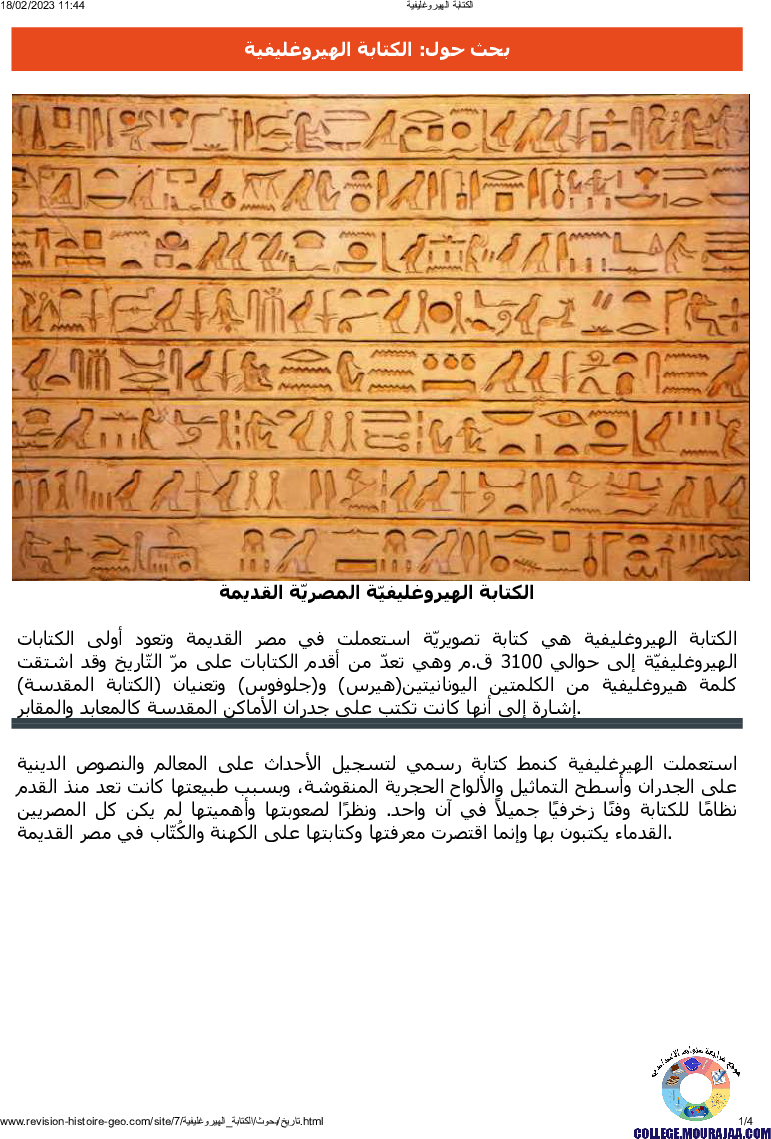 18/02/2023 11:44
الكتابة الهيروغليفية
بحث حول: الكتابة الهيروغليفية
الكتابة الهيروغليفيّة المصريّة القديمة
الكتابة الهيروغليفية هي كتابة تصويريّة استعملت في مصر القديمة وتعود أولى الكتابات
الهيروغليفيّة إلى حوالي 3100 ق.م وهي تعدّ من أقدم الكتابات على مرّ التّاريخ وقد اشتقت
كلمة هيروغليفية من الكلمتين اليونانيتين(هيرس) و(جلوفوس) وتعنيان (الكتابة المقدسة)
إشارة إلى أنها كانت تكتب على جدران الأماكن المقدسة كالمعابد والمقابر.
استعملت الهيرغليفية كنمط كتابة رسمي لتسجيل الأحداث على المعالم والنصوص الدينية
على الجدران وأسطح التماثيل والألواح الحجرية المنقوشة، وبسبب طبيعتها كانت تعد منذ القدم
نظامًا للكتابة وفنًا زخرفيًا جميلاً في آن واحد. ونظرًا لصعوبتها وأهميتها لم يكن كل المصريين
القدماء يكتبون بها وإنما اقتصرت معرفتها وكتابتها على الكهنة والكُتّاب في مصر القديمة.
موقع مراجعة متوافد الإعدادي
www.revision-histoire-geo.com/site/7/تاريخ/بحوث/الكتابة_الهيروغليفية.html
1/4
COLLEGE.MOURAJAA.COM